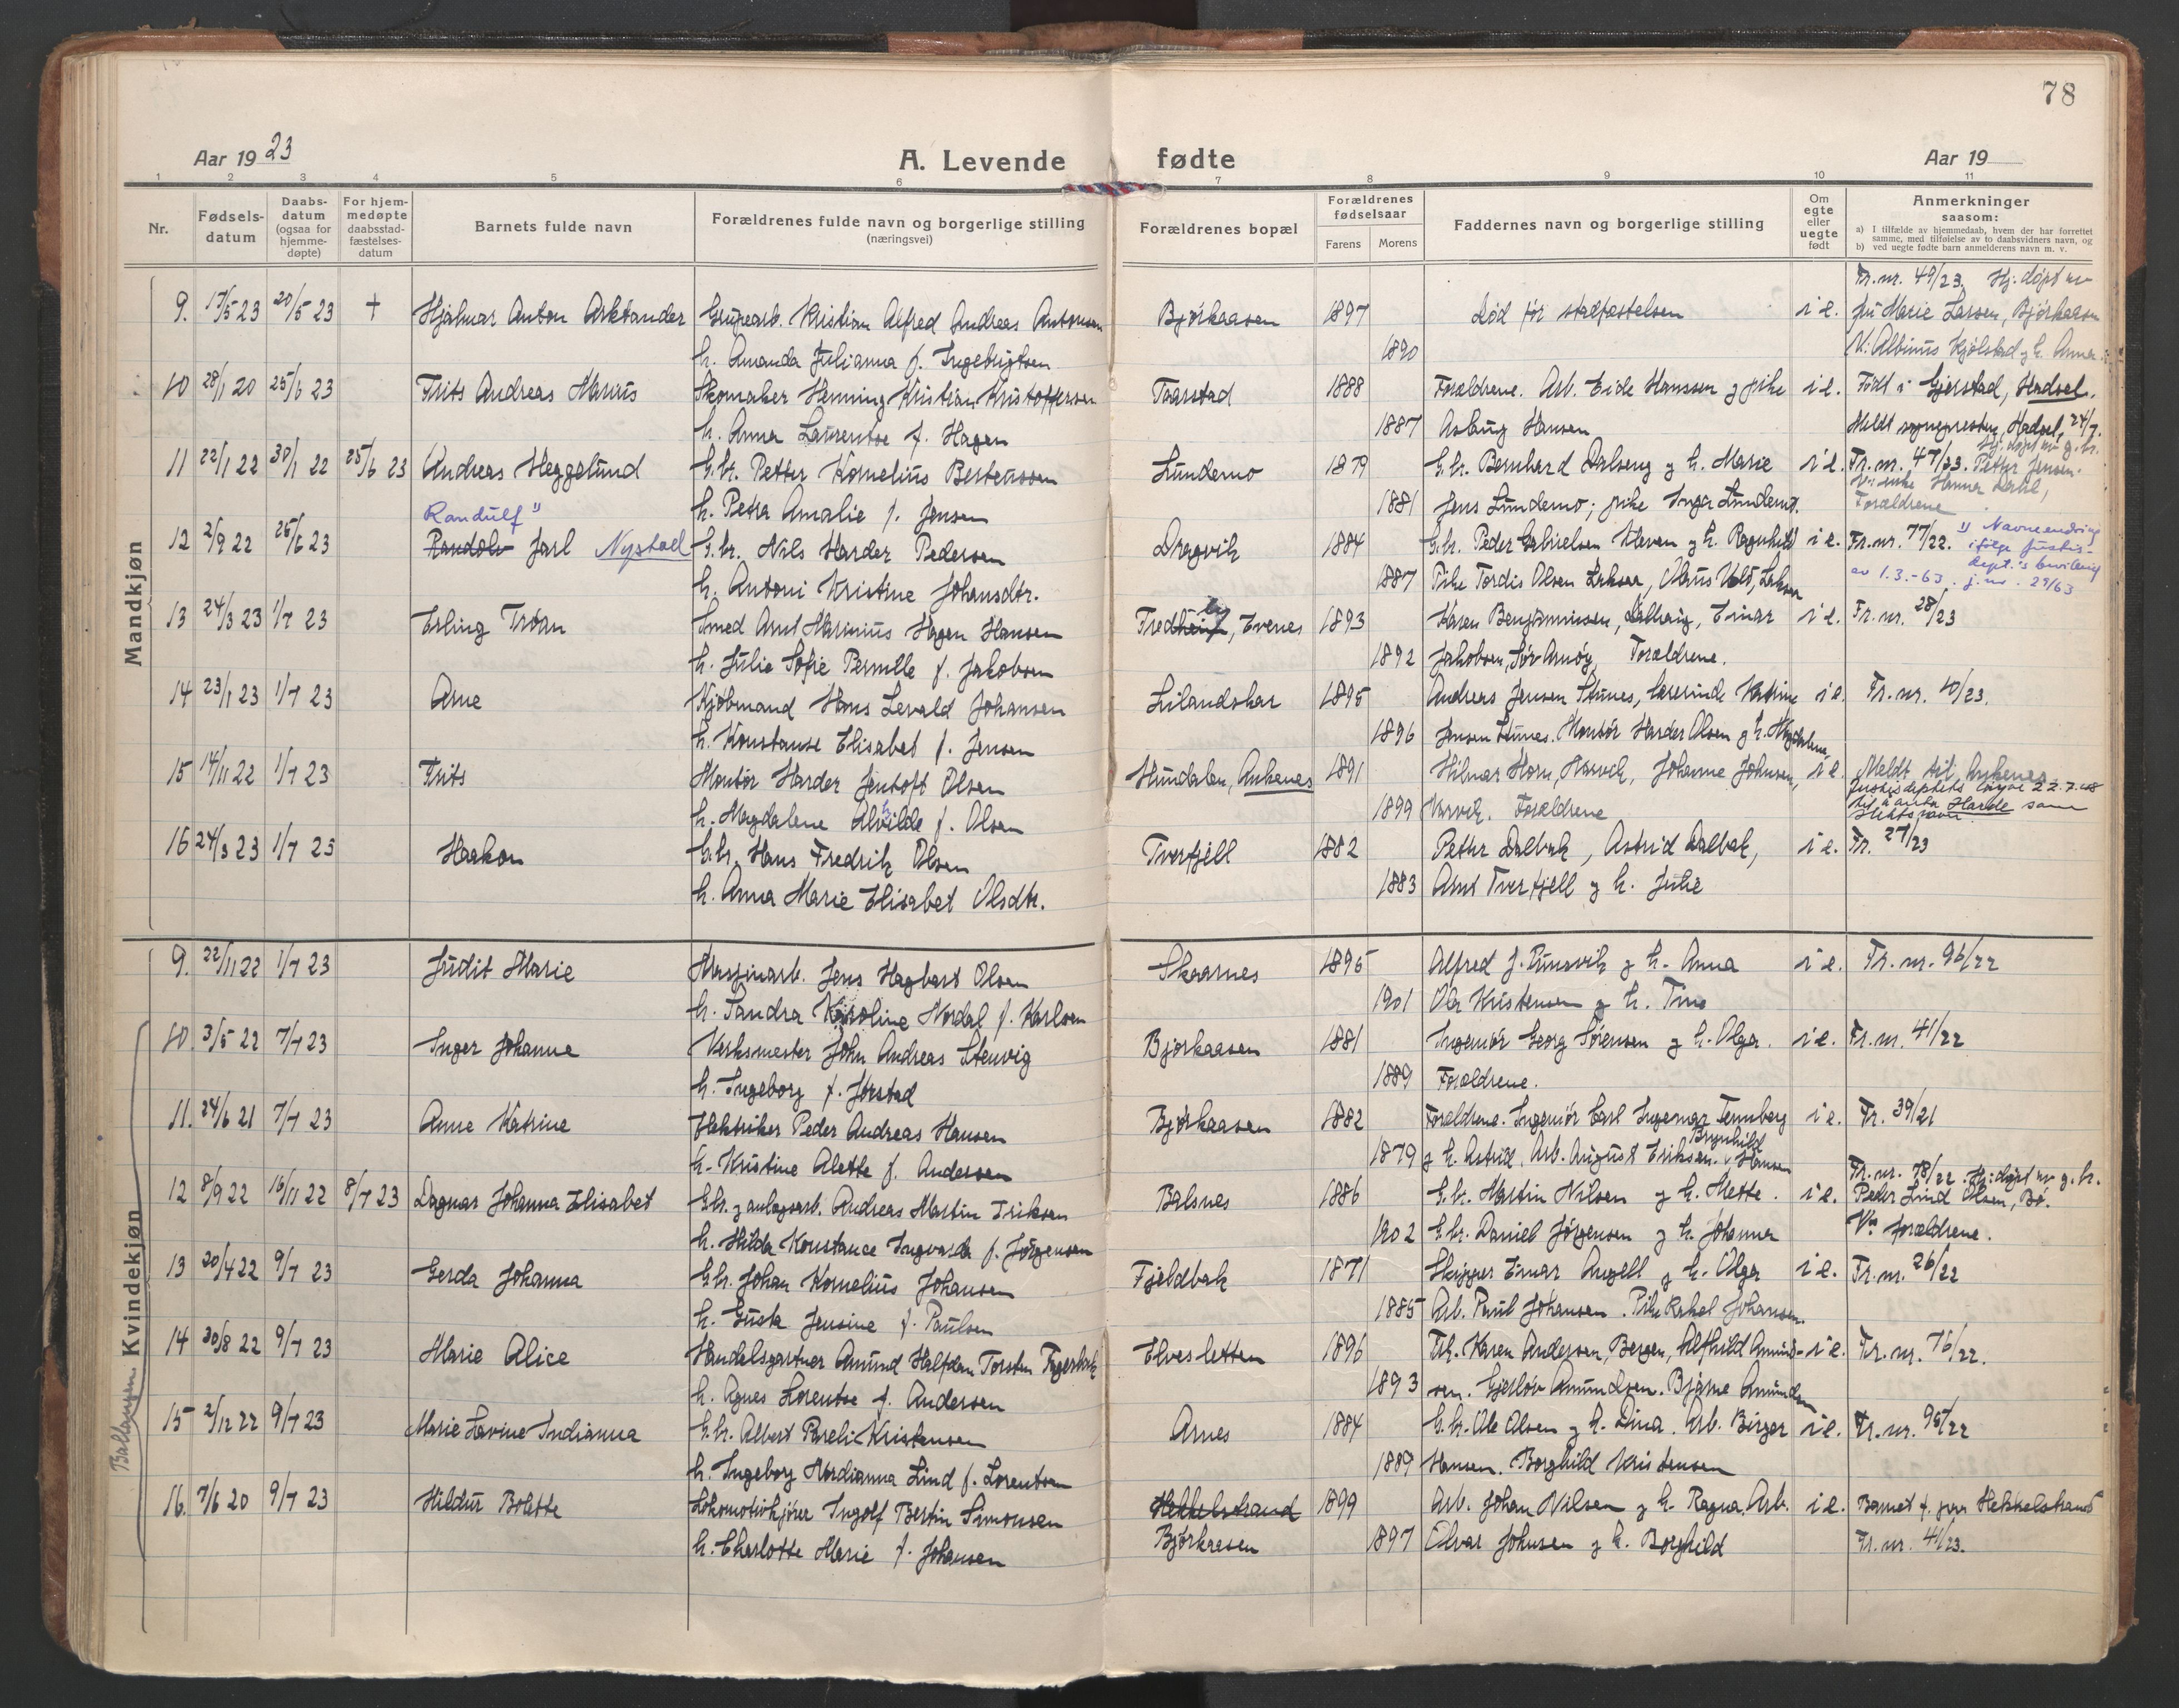 78
Aar 1923
A. Levende fødte
Aar 19
1 2 3 4 5 6 7 8 9 10 11
Nr.
Fødsels-
datum
Daabs-
datum
(ogsaa for
hjemme-
døpte)
For hjem-
medøpte
daabsstad-
fæstelses-
datum
Barnets fulde navn
Forældrenes fulde navn og borgerlige stilling
(næringsvei)
Forældrenes bopæl
Forældrenes
fødselsaar
Farens Morens
Faddernes navn og borgerlige stilling
Om
egte
eller
uegte
født
Anmerkninger
saasom:
a) I tilfælde av hjemmedaab, hvem der har forrettet
samme, med tilføielse av to daabsvidners navn, og
b) ved uegte fødte barn anmelderens navn m. v.
Mandkjøn
Fr. nr. 49/23. Hj. døpt av
9. 17/5 23 20/5 23 + Hjalmar Anton Arktander Grupearb. Kristian Alfred Andreas Antonsen Bjørkaasen 1897 Død før stadfæstelsen i e. fru Marie Larsen, Bjørkaasen
h. Amanda Julianna f. Ingebrigtsen 1890 V: Albinus Kjølstad og h. Anna
10 28/1 20 25/6 23 Frits Andreas Marius Skomaker Henning Kristian Kristoffersen Taarstad 1888 Forældrene. Arb. Eide Hanssen og pike i e. Født i Gjerstad, Hadsel.
h. Anna Laurentse f. Hagen 1887 Aslaug Hansen Meldt sognepresten, Hadsel, 24/7.
11 22/1 22 30/1 22 25/6 23 Andreas Heggelund G.br. Petter Kornelius Berteussen Lundemo 1879 G.br. Bernhard Dalseng og h. Marie i e. Fr. nr. 47/23. Hj. døpt av g.br. Petter Jensen.
h. Petra Amalie f. Jensen 1881 Jens Lundemo; pike Inga Lundemo. Hanna Dahl, Forældrene
Randulf 1)
12 2/9 22 25/6 23 Randolv Jarl Nystad G.br. Nils Harder Pedersen Dragvik 1884 G.br. Peder Gabrielsen Kleven og h. Ragnhild i e. Fr. nr. 77/22. 1) Navneendring
ifølge Justis-
dept.'s bevilling
h. Antoni Kristine Johansdtr. 1887 Pike Tordis Olsen Laksaa, av 1.3.-63. j.nr. 29/63
13 24/3 23 1/7 23 Erling Trøan Smed Arnt Marinius Hagen Hansen Fredheim, Evenes 1893 Karen Benjaminsen, Einar i e. Fr. nr. 28/23
h. Julie Sofie Pernille f. Jakobsen 1892 Jakobsen, Sør Arnøy, Forældrene.
14 23/1 23 1/7 23 Arne Kjøbmand Hans Levald Johansen Lilandskar 1895 Andreas Jensen Stunes, lærerinde Katrine i e. Fr. nr. 10/23.
h. Konstanse Elisabet f. Jensen 1896 Jensen Stunes. Montør Harder Olsen og h. Magdalene
15 14/11 22 1/7 23 Frits Montør Harder Jentoft Olsen Hundalen, Ankenes 1891 Hilmar Horn, Narvik, Johanne Johnsen, i e. Meldt til Ankenes
h. Magdalene Alvilde f. Olsen 1899 Narvik. Forældrene Justisdeptets 22.7.48
til å anta Harde som
slektsnavn
16 24/3 23 1/7 23 Haakon G.br. Hans Fredrik Olsen Tverfjell 1882 Petter Dalbak, Astrid Dalbak, i e. Fr. 27/23
h. Anna Marie Elisabet Olsdtr. 1883 Arnt Tverfjell og h. Julie
Kvindekjøn
Ballangen
9. 22/11 22 1/7 23 Judit Marie Maskinarb. Jens Hagbart Olsen Skarnes 1895 Alfred J. Punsvik og h. Anna i e. Fr. nr. 96/22
h. Sandra Karoline Nordal f. Karlsen 1901 Ola Kristensen og h. Tina
10. 3/5 22 7/7 23 Inger Johanne Verksmester John Andreas Stenvig Bjørkaasen 1881 Ingeniør Georg Sørensen og h. Olga. i e. Fr. nr. 41/22
h. Ingeborg f. Jørstad 1889 Forældrene.
11. 24/6 21 7/7 23 Anne Katrine Elektriker Peder Andreas Hansen Bjørkaasen 1882 Forældrene. Ingeniør Carl Ingemar Tennberg i e. Fr. 39/21
h. Kristine Alette f. Andersen 1879 og h. Astrid. Arb. August Eriksen. Brynhild Hansen
12 8/9 22 16/11 22 8/7 23 Dagmar Johanna Elisabet G.br. og anlegsarb. Andreas Martin Eriksen Balsnes 1886 G.br. Martin Nilsen og h. Mette. i e. Fr. nr. 78/22. Hj: døpt av g.br.
Peder Lind Olsen, Bø.
h. Hilda Konstance Ingvarda f. Jørgensen 1902 G.br. Daniel Jørgensen og h. Johanna V: forældrene.
13 20/4 22 9/7 23 Gerda Johanna G.br. Johan Kornelius Johansen Fjeldbak 1871 Skipper Einar Angell og h. Olga i e. Fr. nr. 26/22
h. Gusta Jensine f. Paulsen 1885 Arb. Paul Johansen. Pike Rakel Johansen.
14 30/8 22 9/7 23 Marie Alice Handelsgartner Amund Halfdan Torsten Fagerbak Elvesletten 1896 Frk. Karen Andersen, Bergen, Alfhild Amund- i e. Fr. nr. 76/22.
h. Agnes Lorentse f. Andersen 1893 sen. Gjerløv Amundsen. Bjarne Amundsen
15 2/12 22 9/7 23 Marie Lovine Indianna G.br. Albert Pareli Kristensen Arnes 1884 G.br. Ole Olsen og h. Dina. Arb. Birger i e. Fr. nr. 95/22
h. Ingeborg Nordianna Lind f. Lorentsen 1889 Hansen. Borghild Kristensen
16. 7/6 20 9/7 23 Hildur Bolette Lokomotivkjører Ingolf Bertin Simonsen Hekkelstrand 1899 Arb. Johan Nilsen og h. Ragna. Arb. i e. Barnet f. paa Hekkelstrand
h. Charlotte Marie f. Johansen Bjørkaasen 1897 Edvar Johnsen og h. Borghild Fr. nr. 41/23.